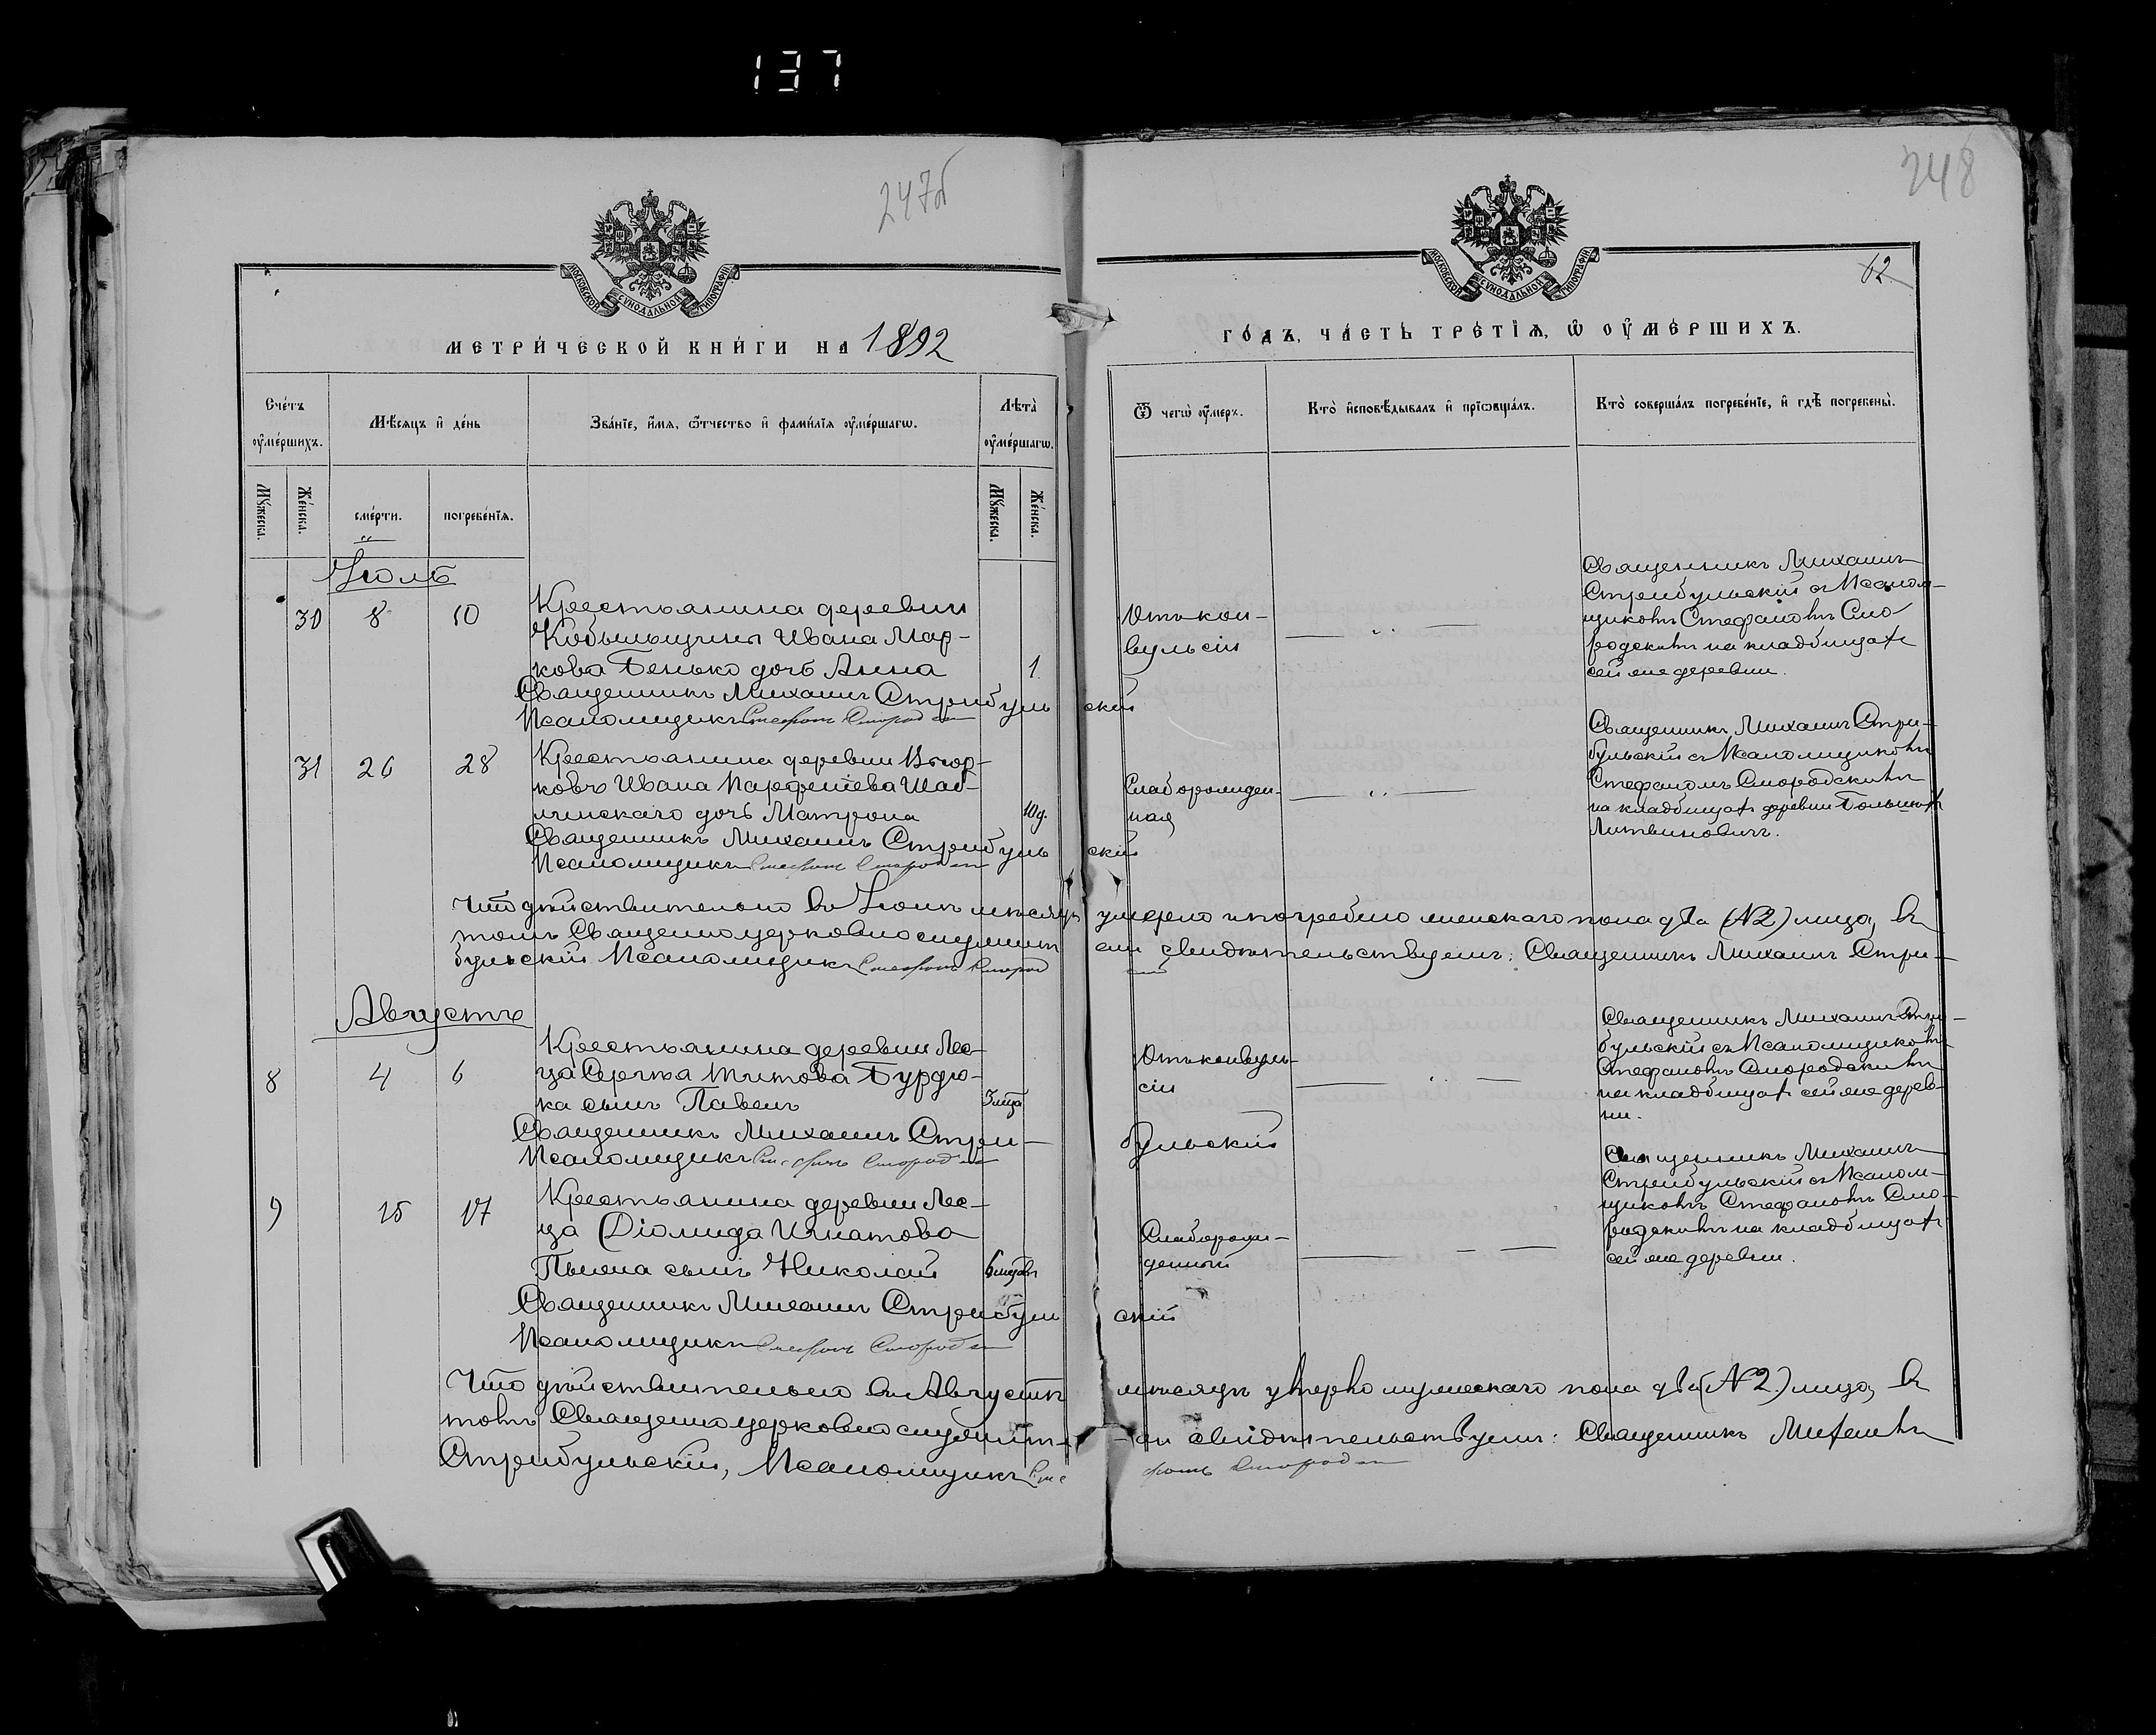 137
247б
248
МОСКОВСКОЙ СѴНОДАЛЬНОЙ ТИПОГРАФІИ
МОСКОВСКОЙ СѴНОДАЛЬНОЙ ТИПОГРАФІИ
62
МЕТРИ́ЧЕСКОЙ КНИ́ГИ НА 1892
ГО́ДЪ, ЧА́СТЬ ТРЕ́ТІѦ, Ѡ҆ ОУ҆МЕ́РШИХЪ.
Сче́тъ оу҆ме́ршихъ.
Мѣ́сяцъ и҆ де́нь
Зва́нїе, и҆́мѧ, ѻ҆́тчество и҆ фами́лїѧ оу҆ме́ршагѡ.
Лѣ́та оу҆ме́ршагѡ.
Ѿ чегѡ̀ оу҆́меръ.
Кто̀ и҆сповѣ́дывалъ и҆ прїѡбща́лъ.
Кто̀ соверша́лъ погребе́нїе, и҆ гдѣ̀ погребены̀.
Мꙋ́жеска.
Же́нска.
сме́рти.
погребе́нїѧ.
Мꙋ́жеска.
Же́нска.
Іюль
30 8 10
Крестьянина деревни
Кобыльщины Ивана Мар-
кова Бенько дочь Анна
1.
Отъ кон-
вульсіи
Священникъ Михаилъ
Стрибульскій съ Псалом-
щикомъ Стефаномъ Смо-
родскимъ на кладбищахъ
сей же деревни.
Священникъ Михаилъ Стрибульскій
Псаломщикъ Стефанъ
31 26 28
Крестьянина деревни
Ивана Парфенiева Шаб-
линскаго дочь Матрона
10 д.
Слаборожден-
ная
Священникъ Михаилъ Стри-
бульскій съ Псаломщикомъ
Стефаномъ Смородскимъ
на кладбищахъ деревни Большихъ
Литвиновичъ.
Священникъ Михаилъ Стрибульскій
Псаломщикъ Стефанъ
Что дѣйствительно въ Іюлѣ мѣсяцѣ умерло и погребено женскаго пола два (№2) лица, въ
томъ Священноцерковнослужители свидѣтельствуемъ: Священникъ Михаилъ Стри-
бульскій Псаломщикъ Стефанъ
Августъ
8 4 6
Крестьянина деревни Лес-
ца Сергѣя Титова Бурдю-
ка сынъ Павелъ
3 мѣс.
Отъ конвуль-
сіи
Священникъ Михаилъ Стри-
бульскій съ Псаломщикомъ
Стефаномъ Смородскимъ
на кладбищахъ сей же дерев-
ни.
Священникъ Михаилъ Стрибульскій
Псаломщикъ Стефанъ
9 15 17
Крестьянина деревни Лес-
ца Діомида Игнатова
Пьяна сынъ Николай
Слаборож-
денный
Священникъ Михаилъ
Стрибульскій съ Псалом-
щикомъ Стефаномъ Смо-
родскимъ на кладбищахъ
сей же деревни.
Священникъ Михаилъ Стрибульскій
Псаломщикъ Стефанъ
Что дѣйствительно въ Августѣ мѣсяцѣ умерло мужескаго пола два (№2) лица, въ
томъ Священноцерковнослужители свидѣтельствуемъ: Священникъ Михаилъ
Стрибульскій, Псаломщикъ Стефанъ